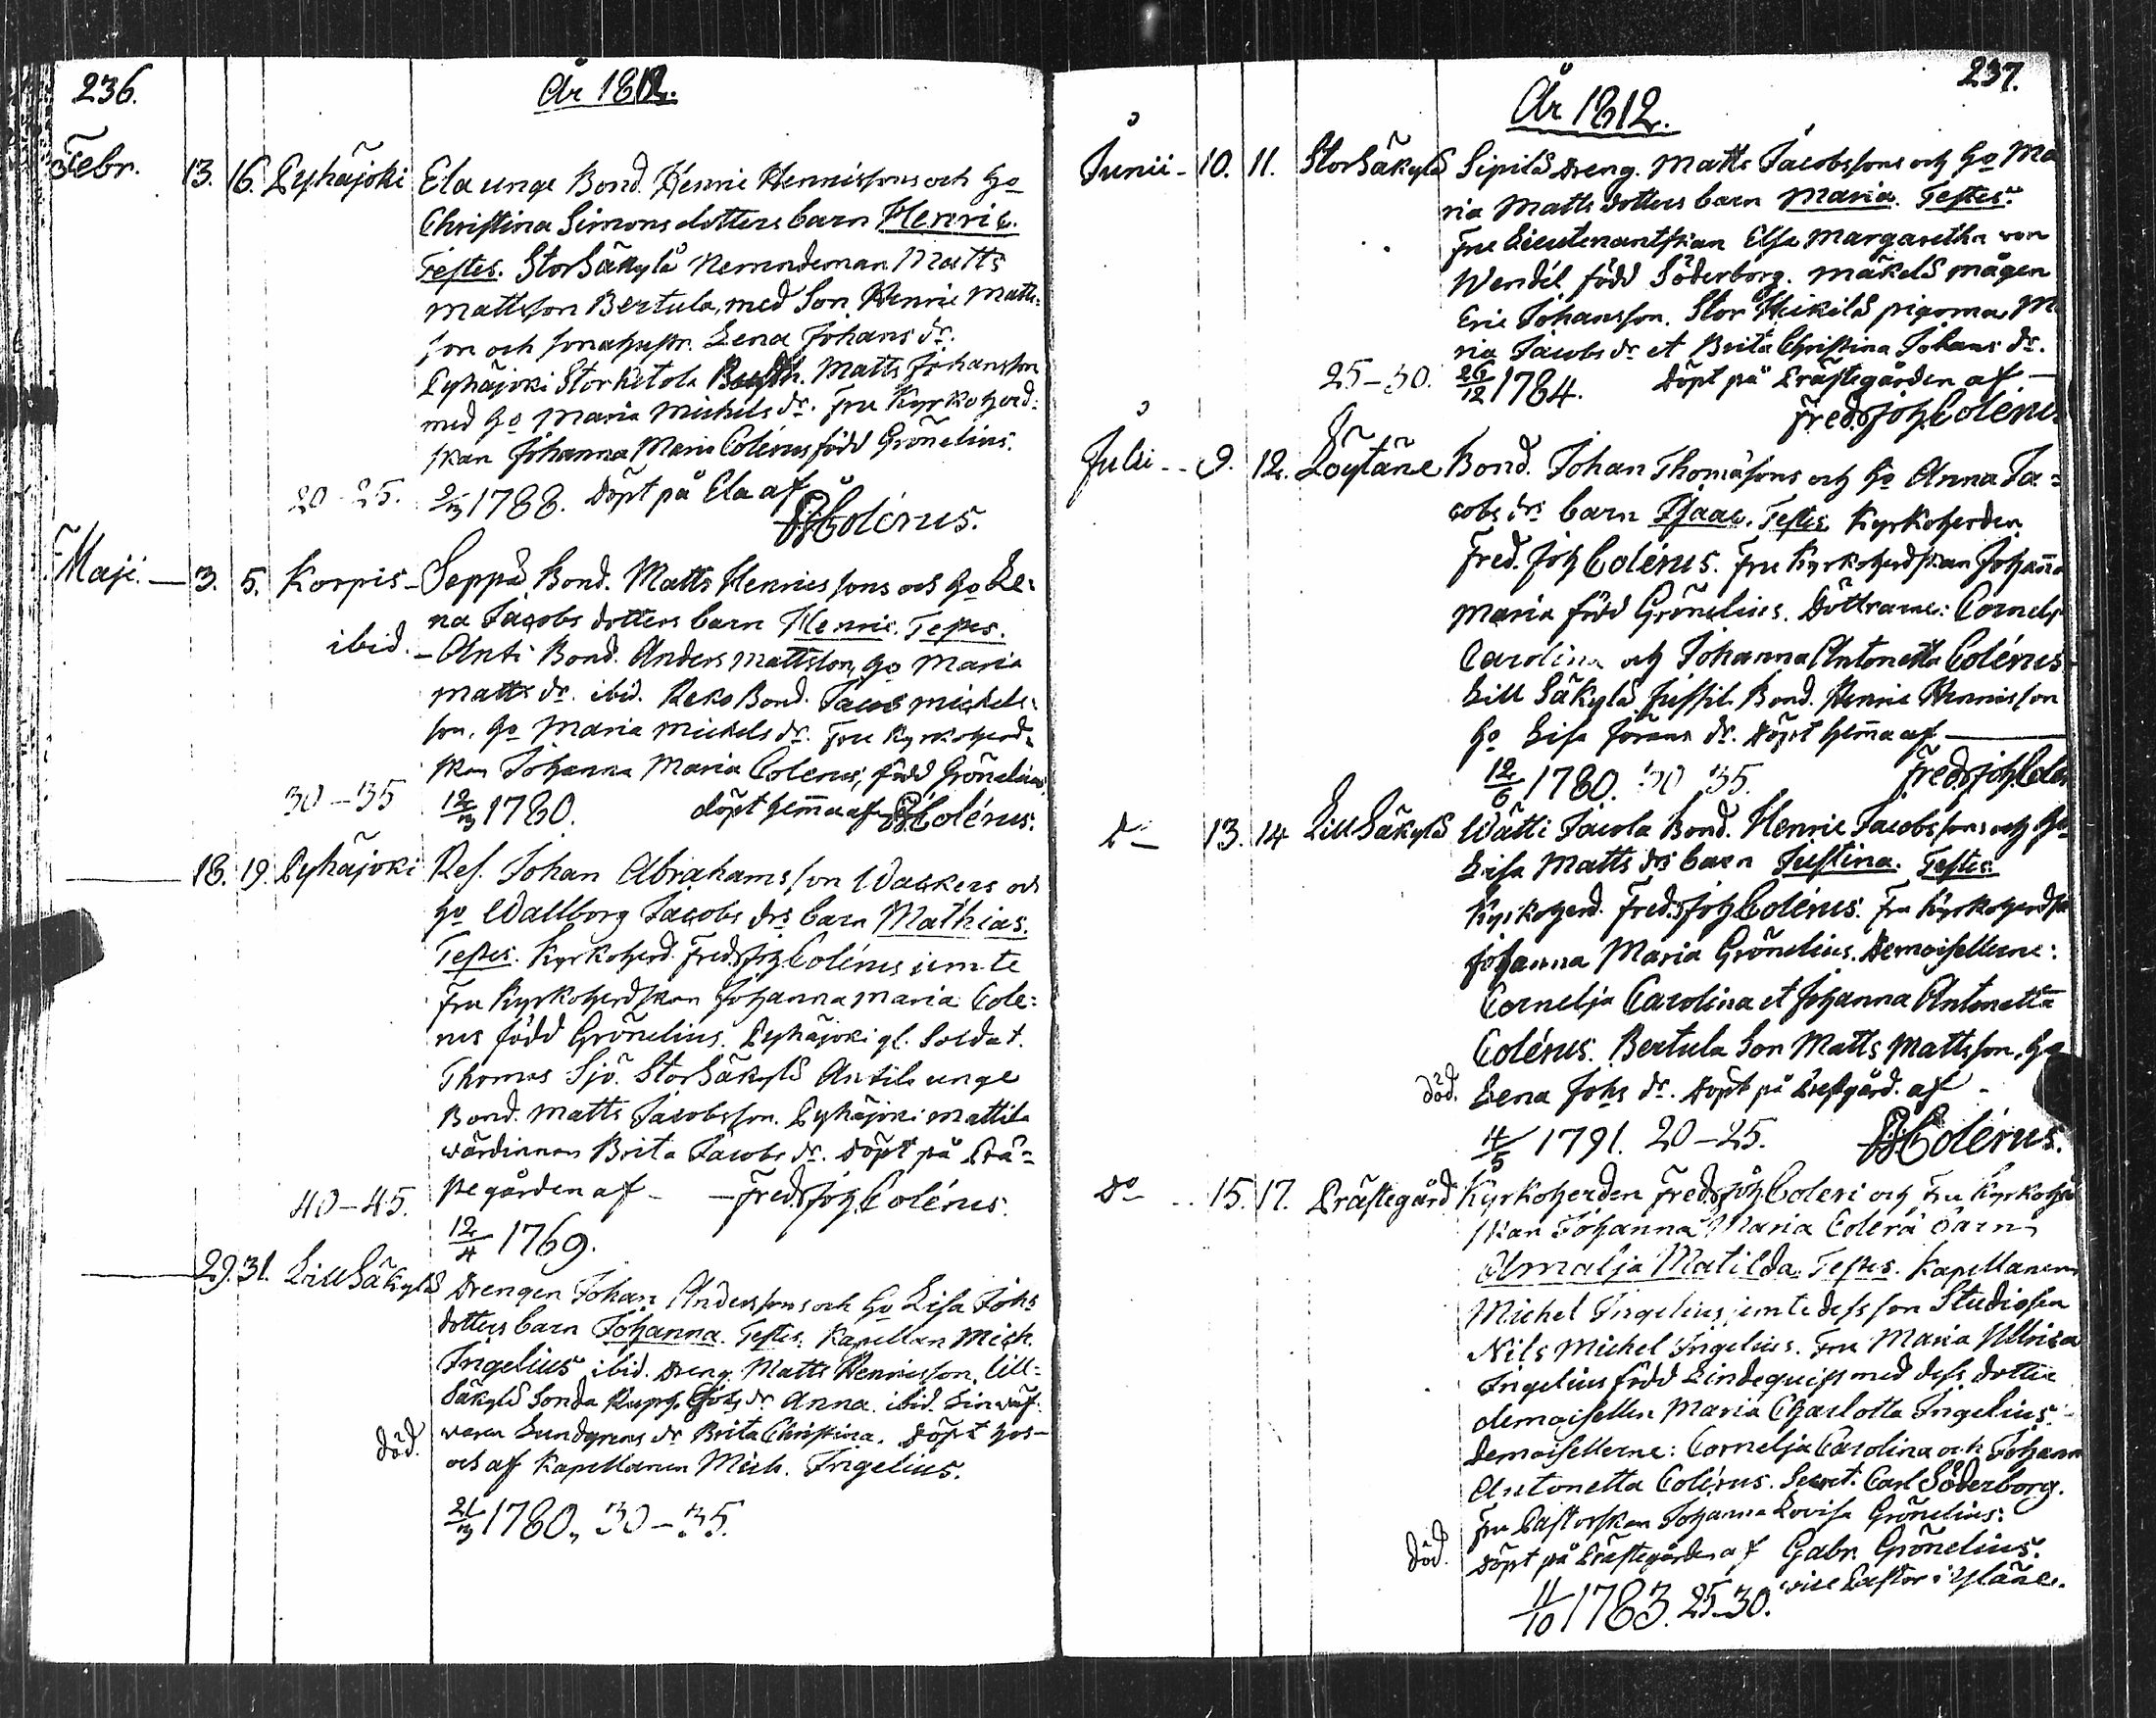 236.
År 1812.
Febr. 13. 16. Pyhäjoki Ela unge Bond. Henric Henricssons och Ho
Christina Simons dotters barn Henric.
Testes. StorSäkylä Nemndeman Matts
Mattsson Bertula, med Son Henric Matts=
son och sonahustr. Lena Johans dr.
Pyhäjoki Storkitola Bondn. Matts Johansson
med Ho Maria Michels dr. Fru Kyrkoherd=
skan Johanna Maria Colérus född Grönelius.
20-25. 2/3 1788. Döpt på Ela af
FJColérus.
Maji. — 3. 5. Korpis - Seppä Bond. Matts Henricssons och Ho Le=
na Jacobs dotters barn Henric. Testes.
ibid. - Anti Bond. Anders Mattsson, Ho Maria
Matts dr. ibid. Reko Bond. Jacob Michels=
son, Ho Maria Michels dr. Fru Kyrkoherd=
skan Johanna Maria Colerus, född Grönelius.
30-35 12/3 1780. döpt hemma af FJColérus.
18. 19. Pyhäjoki Res. Johan Abrahamsson Wackers och
Ho Wallborg Jacobs drs barn Mathias.
Testes. Kyrkoherd. Fred. Joh Colérus jemte
Fru Kyrkoherdskan Johanna Maria Cole=
rus född Grönelius. Pyhäjoki gl. Soldat.
Thomas Sjö. StorSäkylä Antila unge
Bond. Matts Jacobsson. Pyhäjoki Mattila
wärdinnan Brita Jacobs dr. Döpt på Prä=
stegården af - - Fred. Joh. Colérus.
40-45.
12/4 1769.
29. 31. LillSäkylä Drengen Johan Anderssons och Ho Lisa Johs
dotters barn Johanna. Testes. Kapellan Mich.
Ingelius ibid. Dreng. Matts Henricsson, Lill=
Säkylä Sonda Johs dr Anna. ibid.
Lundgrens dr Brita Christina. Döpt hos
död. och af Kapellanen Mich. Ingelius.
21/3 1780. 30-35.
237.
År 1812.
Junii - 10. 11. StorSäkylä Sipilä Dreng. Matts Jacobssons och Ho Ma
ria Matts dotters barn Maria. Testes.
Fru Lieutenantskan Elsa Margaretha von
Wendel född Söderborg. Mäkelä mågen
Eric Johansson. Stor Heikilä pigorna, M
ria Jacobs dr et Brita Christina Johans dr.
25-30. 26/12 1784. Döpt på Prästegården af —
Fred. Joh. Coléru
Julii - - 9. 12. Löytäne Bond. Johan Thomæsons och Ho Anna Ja=
cobs drs barn Isaac. Testes. Kyrkoherden
Fred. Joh Colérus. Fru Kyrkoherdskan Johanna
Maria född Grönelius. Döttrarne: Cornelja
Carolina och Johanna Antonetta Colérus
Lill Säkylä Jussil. Bond. Henric Henricsson
Ho Lisa Görans dr. Döpt hemma af —
12/6 1780. 30 35. Fred. Joh. Colér
Do 13. 14 LillSäkylä Wätti Jacola Bond. Henric Jacobssons och Ho
Lisa Matts drs barn Justina. Testes.
Kyrkoherd. Fred. Joh Colérus. Fru Kyrkoherdsk
Johanna Maria Grönelius. Demoisellerne:
Cornelja Carolina et Johanna Antonetta
Colérus. Bertula Son Matts Mattsson, Ho
död. Lena Johs dr. Döpt på Prestgård. af -
4/5 1791. 20-25. FJColérus.
Do - - 15. 17. Prästegård Kyrkoherden Fred. Joh Coleri och Fru Kyrkoherd
skan Johanna Maria Colerä barn
Amalja Matilda. Testes. Kapellanen
Michel Ingelius jemte dess son Studiosen
Nils Michel Ingelius. Fru Maria Ulrica
Ingelius född Lindequist med dess dotter
demoisellen Maria Charlotta Ingelius.
Demoisellerne: Cornelja Carolina och Johann
Antonetta Colérus. Secret. Carl Söderborg.
Fru Pastorskan Johanna Lovisa Grönelius.
död. Döpt på Prästegården af Gabr. Grönelius.
11/10 1783. 25-30. vice Pastor i Yläne.